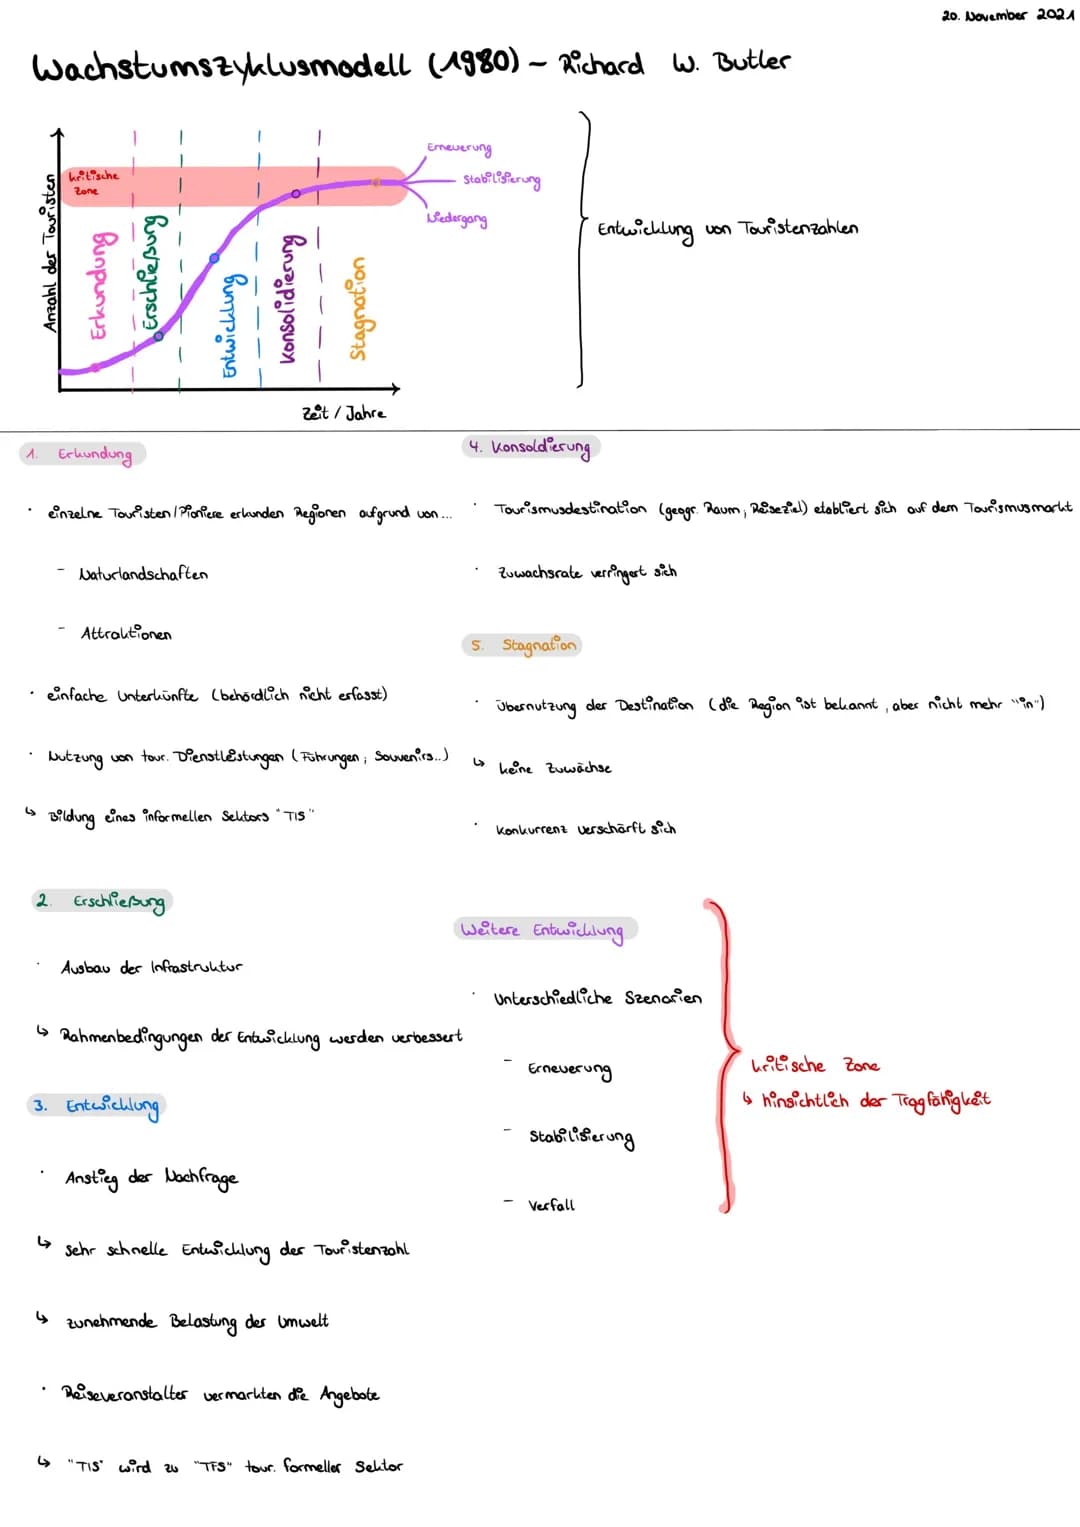 20. November 2021
Wachstumszyklusmodell (1980) – Richard W. Butler
Anzahl der Touristen
kritische
Zone
Erkundung
Erschließung
Entwicklung
Konsolidierung
Stagnation
Erneuerung
Stabilisierung
Niedergang
Zeit / Jahre
Entwicklung von Touristenzahlen
1. Erkundung
· einzelne Touristen / Pioniere erkunden Regionen aufgrund von ...
- Naturlandschaften
- Attraktionen
· einfache Unterkünfte (behördlich nicht erfasst)
· Nutzung von tour. Dienstleistungen (Führungen; Souvenirs..)
↳ Bildung eines informellen Sektors "TIS"
2. Erschließung
· Ausbau der Infrastruktur
↳ Rahmenbedingungen der Entwicklung werden verbessert
3. Entwicklung
· Anstieg der Nachfrage
↳ sehr schnelle Entwicklung der Touristenzahl
↳ zunehmende Belastung der Umwelt
· Reiseveranstalter vermarkten die Angebote
↳ "TIS" wird zu "TFS" tour. formeller Sektor
4. Konsoldierung
· Tourismusdestination (geogr. Raum; Reiseziel) etabliert sich auf dem Tourismusmarkt
· Zuwachsrate verringert sich
5. Stagnation
· Übernutzung der Destination (die Region ist bekannt, aber nicht mehr "in")
↳ keine Zuwächse
· Konkurrenz verschärft sich
Weitere Entwicklung
· Unterschiedliche Szenarien
- Erneuerung
- Stabilisierung
- Verfall
kritische Zone
↳ hinsichtlich der Tragfähigkeit